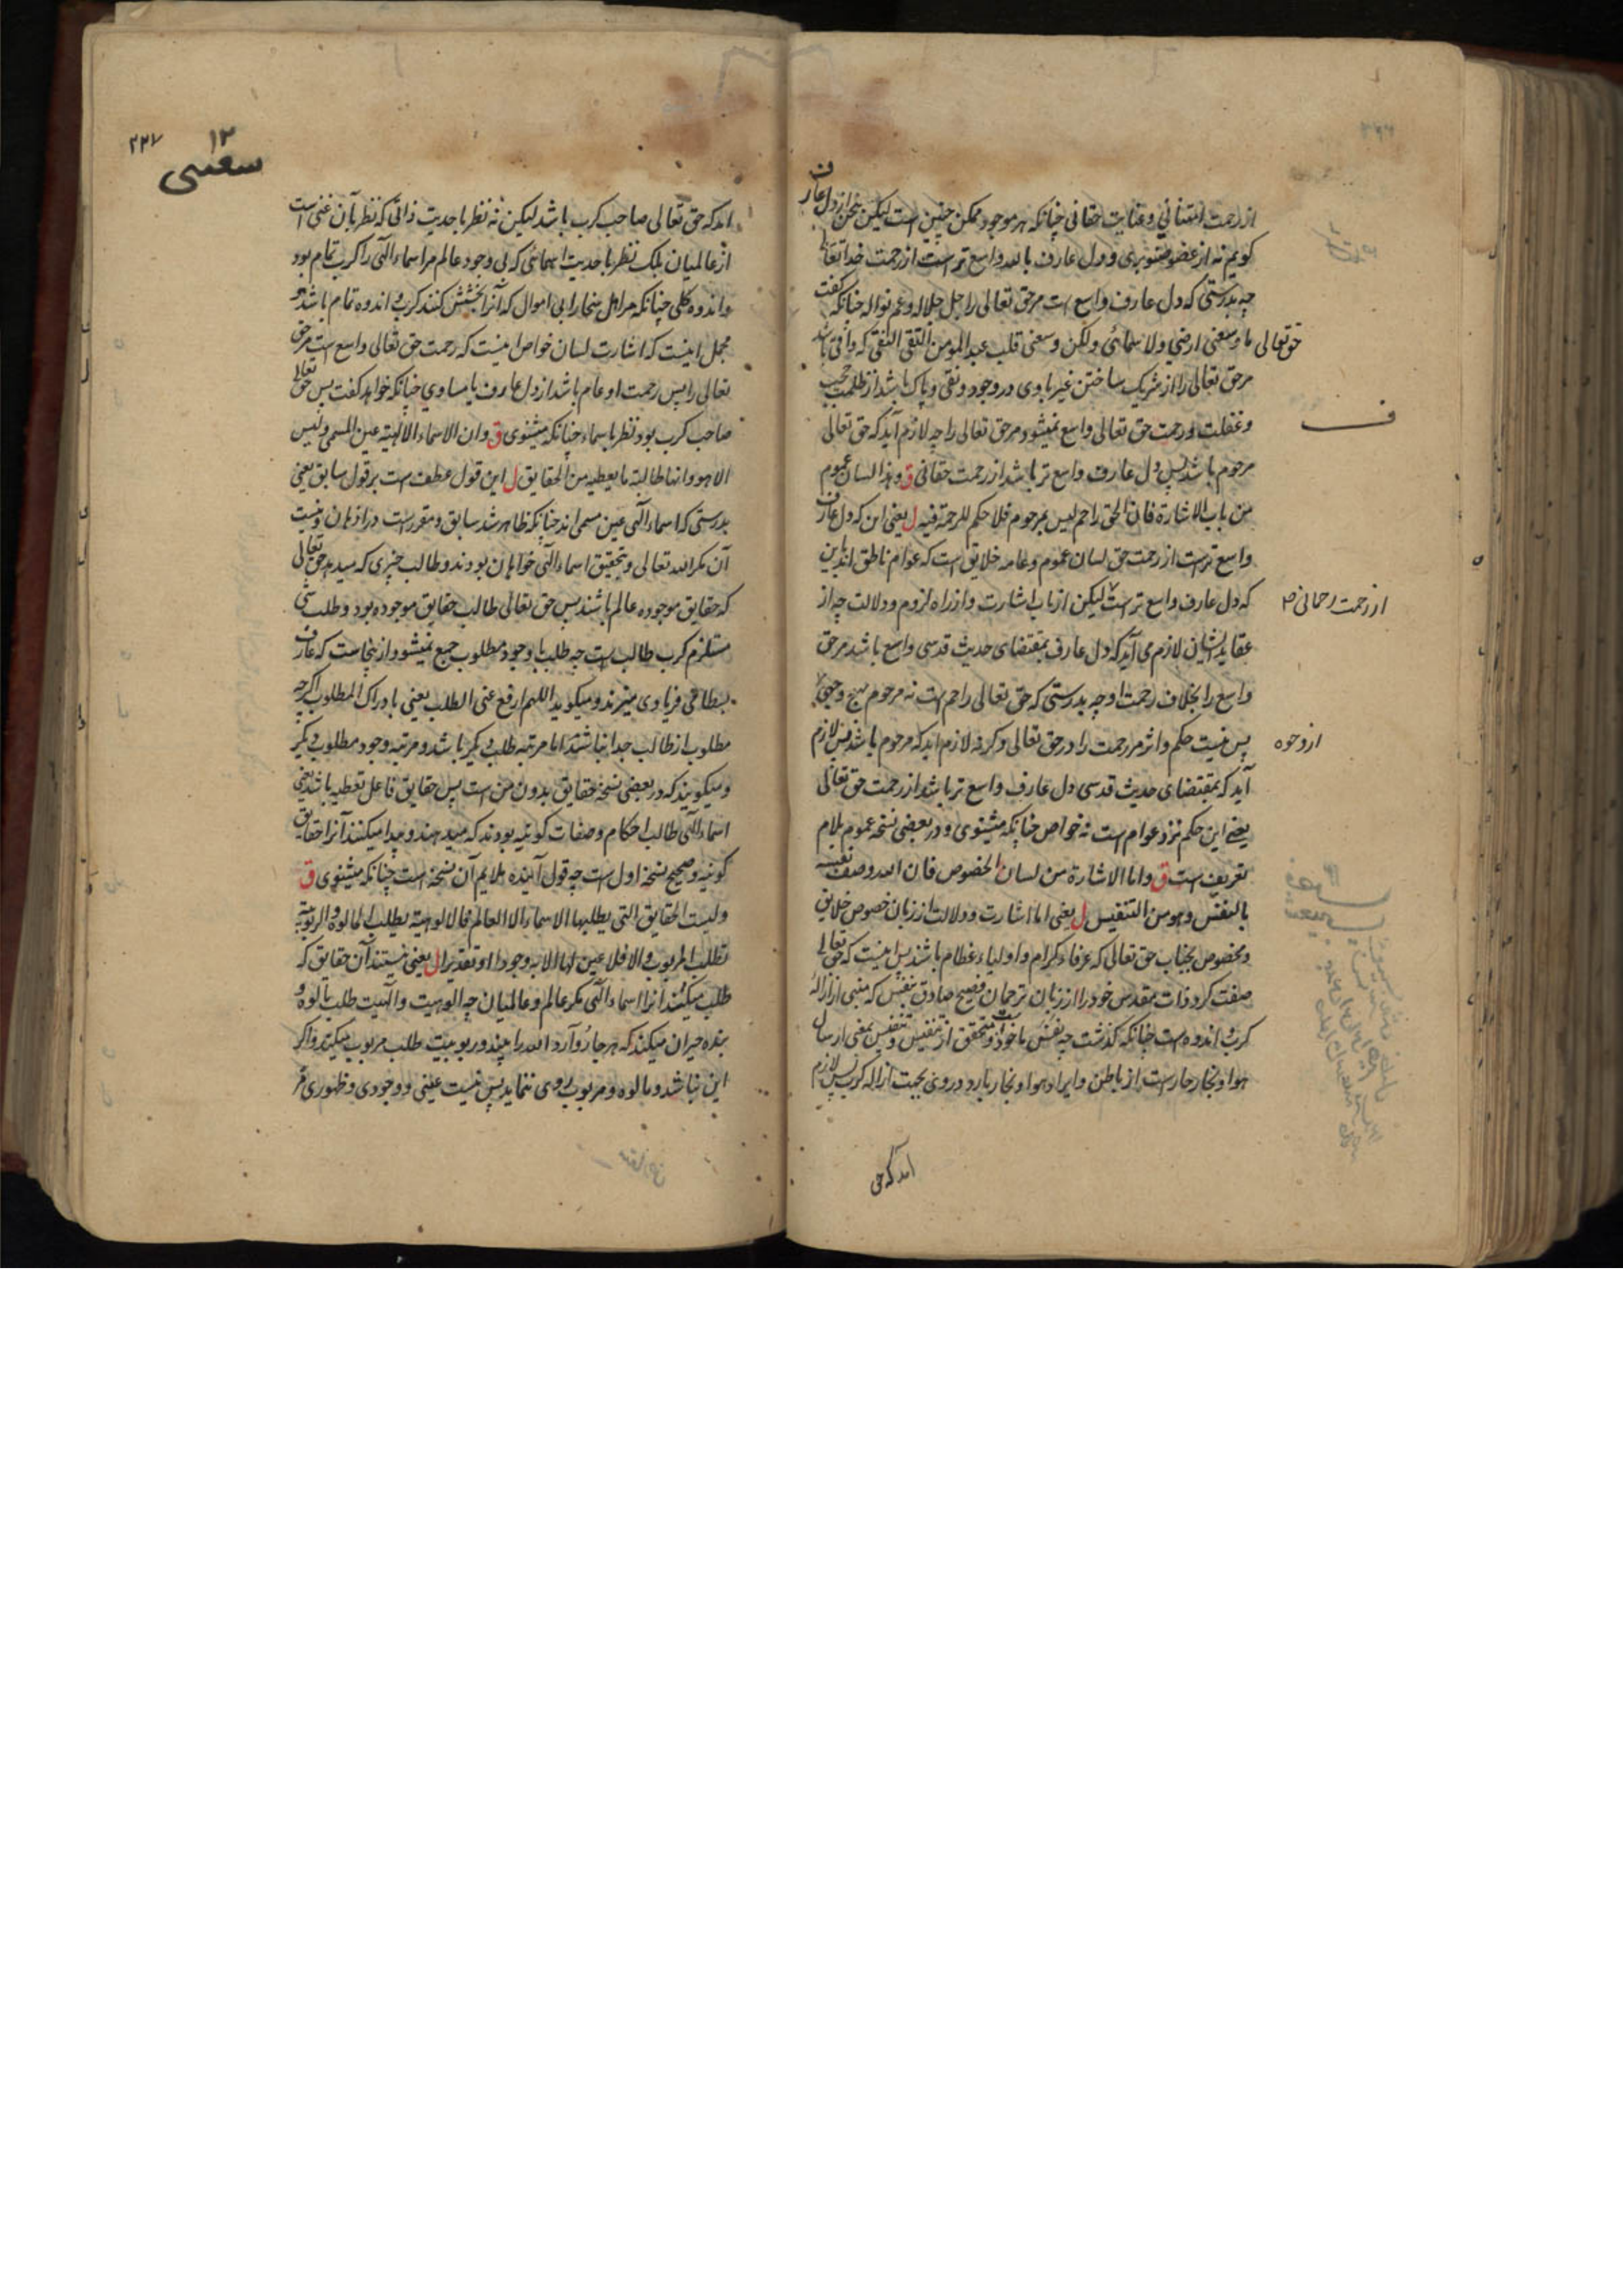 از رحمت امتنانی و عنایت حقانی چنانکه هر موجود ممکن چنین است لیکن سخن از دل عارف
کویم نه از عضو صنوبری و دل عارف بالله واسع تر است از رحمت خدا تعالی
چه بدرستی که دل عارف واسع است مر حق تعالی را جل جلاله و عم نواله چنانکه گفت
حق تعالی ما وسعنی ارضی ولا سمائی ولکن وسعنی قلب عبد المومن التقی النقی که واقی باشد
مر حق تعالی را از شریک ساختن غیر باوی در وجود و نقی و پاک باشد از ظلمت حجب
ف
و غفلت و رحمت حق تعالی واسع نمیشود مر حق تعالی را چه لازم آید که حق تعالی
مرحوم باشد پس دل عارف واسع تر باشد از رحمت حقانی ق و هذا لسان عموم
من باب الاشارة فان الحق راحم لیس بمرحوم فلا حکم للرحمة فیه ل یعنی این که دل عارف
واسع تر است از رحمت حق لسان عموم و عامه خلایق است که عوام ناطق اند باین
که دل عارف واسع تر است لیکن از باب اشارت و از راه لزوم و دلالت چه از
از رحمت رحمانی
عقاید ایشان لازم می آید که دل عارف بمقتضای حدیث قدسی واسع باشد مر حق
واسع را بخلاف رحمت او چه بدرستی که حق تعالی راحم است نه مرحوم بهیچ وجهی
از وجوه
پس نیست حکم و اثر مر رحمت را در حق تعالی و کرنه لازم اید که مرحوم باشد پس لازم
آید که بمقتضای حدیث قدسی دل عارف واسع تر باشد از رحمت حق تعالی
یعنی این حکم نزد عوام است نه خواص چنانکه میشنوی و در بعضی نسخه عموم بلام
تعریف است ق واما الاشارة من لسان الخصوص فان الله وصف نفسه
بالنفس وهو من التنفیس ل یعنی اما اشارت و دلالت از زبان خصوص خلایق
و مخصوص بجناب حق تعالی که عرفاء کرام و اولیاء عظام باشند پس اینست که حق تعالی
صفت کرد ذات مقدس خود را از زبان ترجمان فصیح صادق بنفس که منبی از ازالۀ
کرب و اندوه است چنانکه گذشت چه نفس ماخوذ و متحقق است از تنفیس و تنفیس بمعنی ارسال
هوا و بخار حار است از باطن و ایراد هوا و بخار بارد در وی بجهت ازاله کرب پس لازم
اید که حق
۲۲۷
۱۲
اید که حق تعالی صاحب کرب باشد لیکن نه نظر باحدیت ذاتی که نظر بآن غنی است
از عالمیان بلکه نظر باحدیت اسمائی که بی وجود عالم مر اسماء الهی را کرب تمام بود
و اندوه کلی چنانکه مر اهل سخا را بی اموال که آنرا بخشش کنند کرب و اندوه تمام باشد و
مجمل اینست که اشارت لسان خواص اینست که رحمت حق تعالی واسع است مر حق
تعالی را پس رحمت او عام باشد از دل عارف یا مساوی چنانکه خواهد کفت پس حق تعالی
صاحب کرب بود نظر باسماء چنانکه میشنوی ق وان الاسماء الالهیة عین المسمی ولیس
الا هو وانها طالبة ما یعطیه من الحقایق ل این قول عطف است بر قول سابق یعنی
بدرستی که اسماء الهی عین مسمی اند چنانکه ظاهر شد سابق و مقرر است در اذهان و نیست
آن مکر الله تعالی و بتحقیق اسماء الهی خواهان بودند و طالب چیزی که میدهد حق تعالی
که حقایق موجوده عالم باشند پس حق تعالی طالب حقایق موجوده بود و طلب شی
مستلزم کرب طالب است چه طلب با وجود مطلوب جمع نمیشود و از ینجاست که عارف
بسطامی فریاد می میزند و میکوید اللهم ارفع عنی الطلب یعنی بادراک المطلوب اگرچه
مطلوب از طالب جدا نباشد اما مرتبه طلب دیکر باشد و مرتبه وجود مطلوب دیکر
و میکویند که در بعضی نسخه حقایق بدون من است پس حقایق فاعل تعطیه باشد یعنی
اسماء الهی طالب احکام و صفات کونیه بودند که میدهند و پیدا میکنند آنرا حقایق
کونیه و صحیح نسخه اول است چه قول آینده ملایم آن نسخه است چنانکه میشنوی ق
ولیست الحقایق التی یطلبها الاسماء الا العالم فالالوهیة یطلب المالوه والربوبیة
تطلب المربوب والا فلا عین لها الا به وجودا او تقدیرا ل یعنی نیستند آن حقایق که
طلب میکنند آنرا اسماء الهی مکر عالم و عالمیان چه الوهیت و الهیت طلب مالوه و
بنده حیران میکند که هر جا رو آرد الله را بیند و ربوبیت طلب مربوب میکند و اگر
این نباشد و مالوه و مربوب روی ننماید پس نیست عینی و وجودی و ظهوری مر